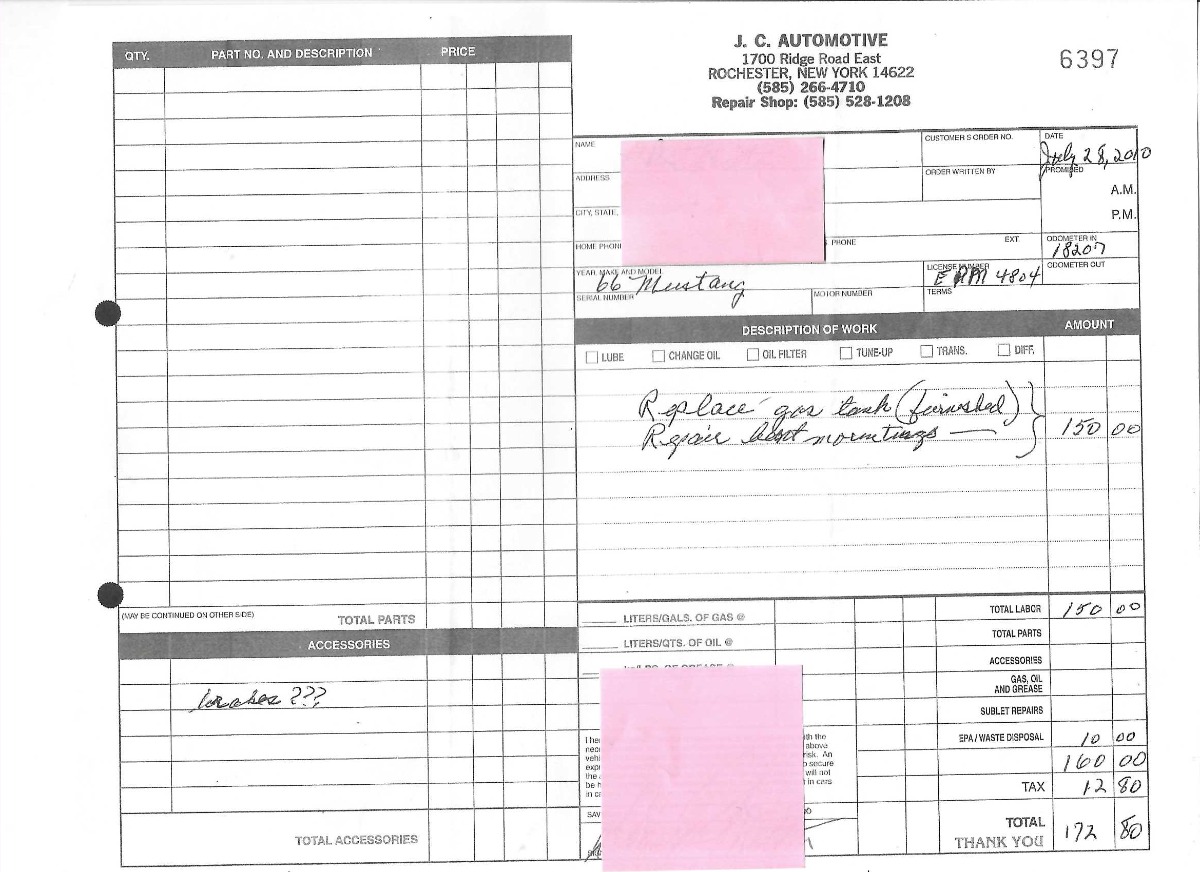 J. C. AUTOMOTIVE
1700 Ridge Road East
ROCHESTER, NEW YORK 14622
(585) 266-4710
Repair Shop: (585) 528-1208
6397
QTY. PART NO. AND DESCRIPTION PRICE
(MAY BE CONTINUED ON OTHER SIDE) TOTAL PARTS
ACCESSORIES
brakes???
TOTAL ACCESSORIES
NAME
CUSTOMER'S ORDER NO.
DATE
July 28, 2010
ADDRESS
ORDER WRITTEN BY
PROMISED
A.M.
P.M.
CITY, STATE,
HOME PHON
PHONE EXT.
ODOMETER IN
18207
YEAR, MAKE AND MODEL
66 Mustang
LICENSE NUMBER
4804
ODOMETER OUT
SERIAL NUMBER
MOTOR NUMBER
TERMS
DESCRIPTION OF WORK AMOUNT
LUBE CHANGE OIL OIL FILTER TUNE-UP TRANS. DIFF.
Replace gas tank (furnished)
Repair mountings 150 00
LITERS/GALS. OF GAS @
LITERS/QTS. OF OIL @
TOTAL LABOR 150 00
TOTAL PARTS
ACCESSORIES
GAS, OIL
AND GREASE
SUBLET REPAIRS
EPA / WASTE DISPOSAL 10 00
160 00
TAX 12 80
TOTAL 172 80
THANK YOU
I he
nec
vehi
exp
the
be h
in c
th the
above
risk. An
secure
will not
in cars
SAV